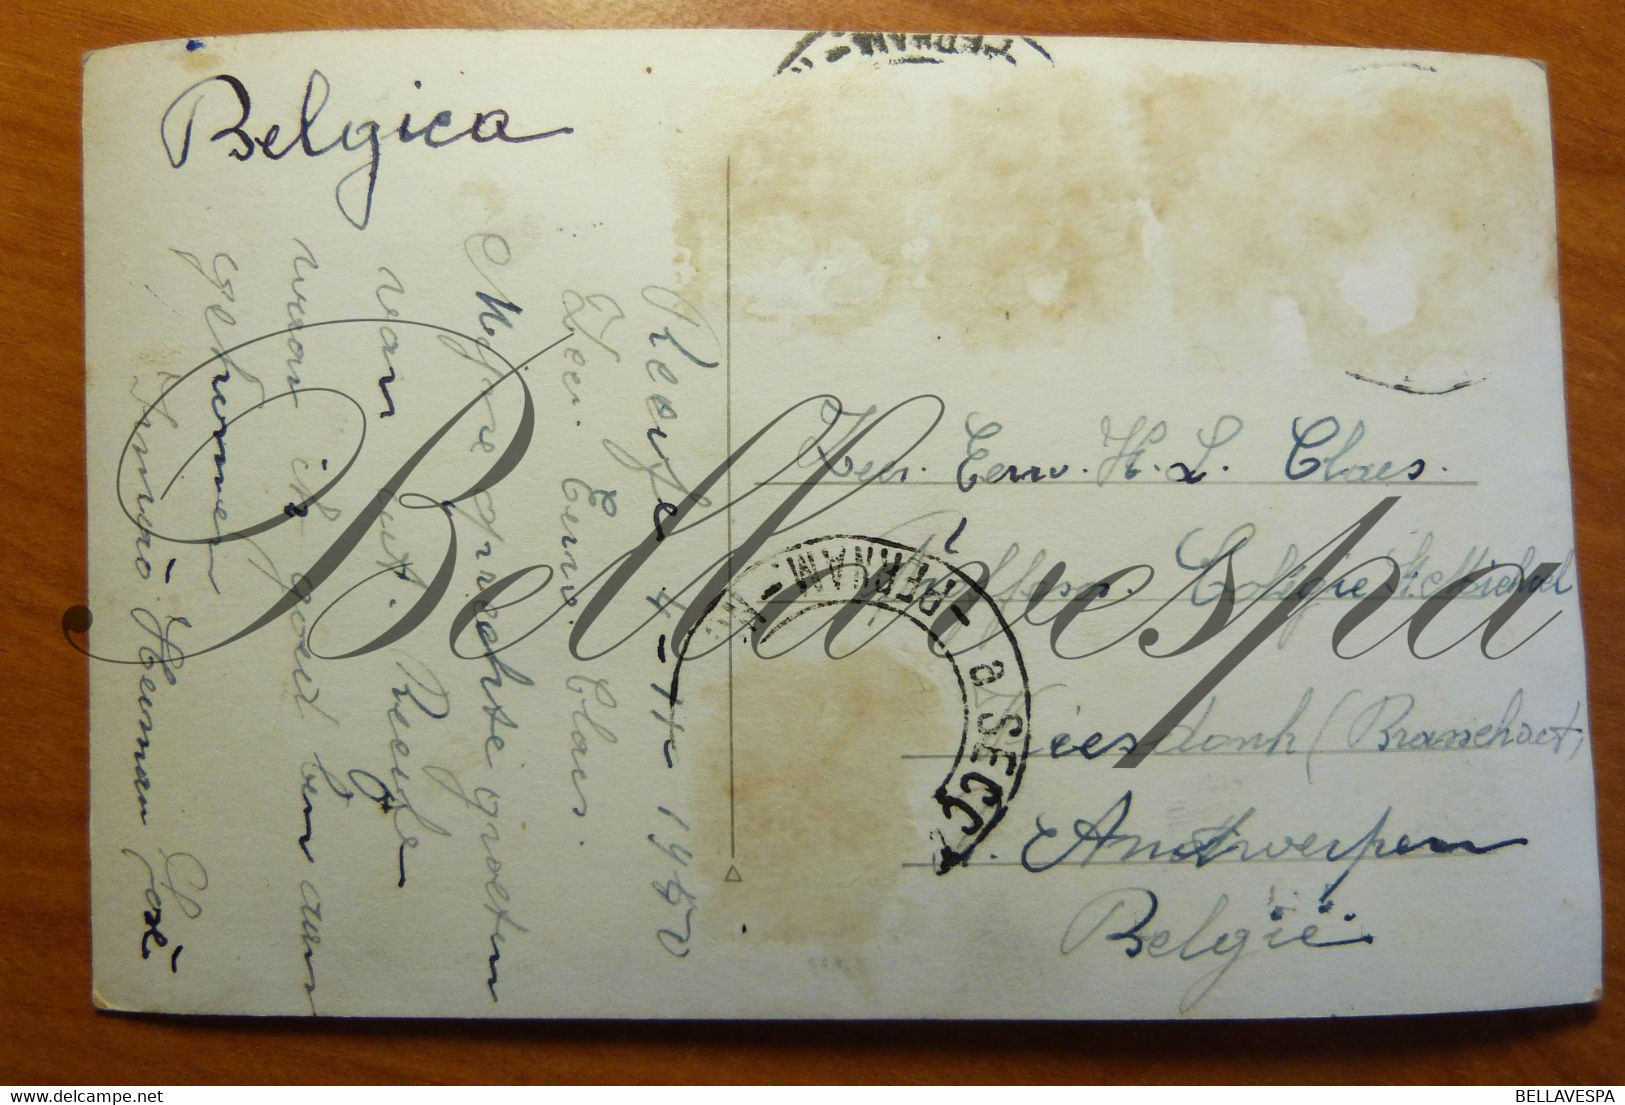 Belgica
Recife 4-1+ 1950
Zeer. Eerw. Claes.
Mijne oprechte groeten
van uit. Recife
waar ik goed ben aan
gekomen
Herman José
Zeer. Eerw. H. L. Claes.
College St. Michael
(Brasschaet)
Antwerpen
België
PERNAM.
8 SECÇ
PERNAM
Bellavespa
BELLAVESPA